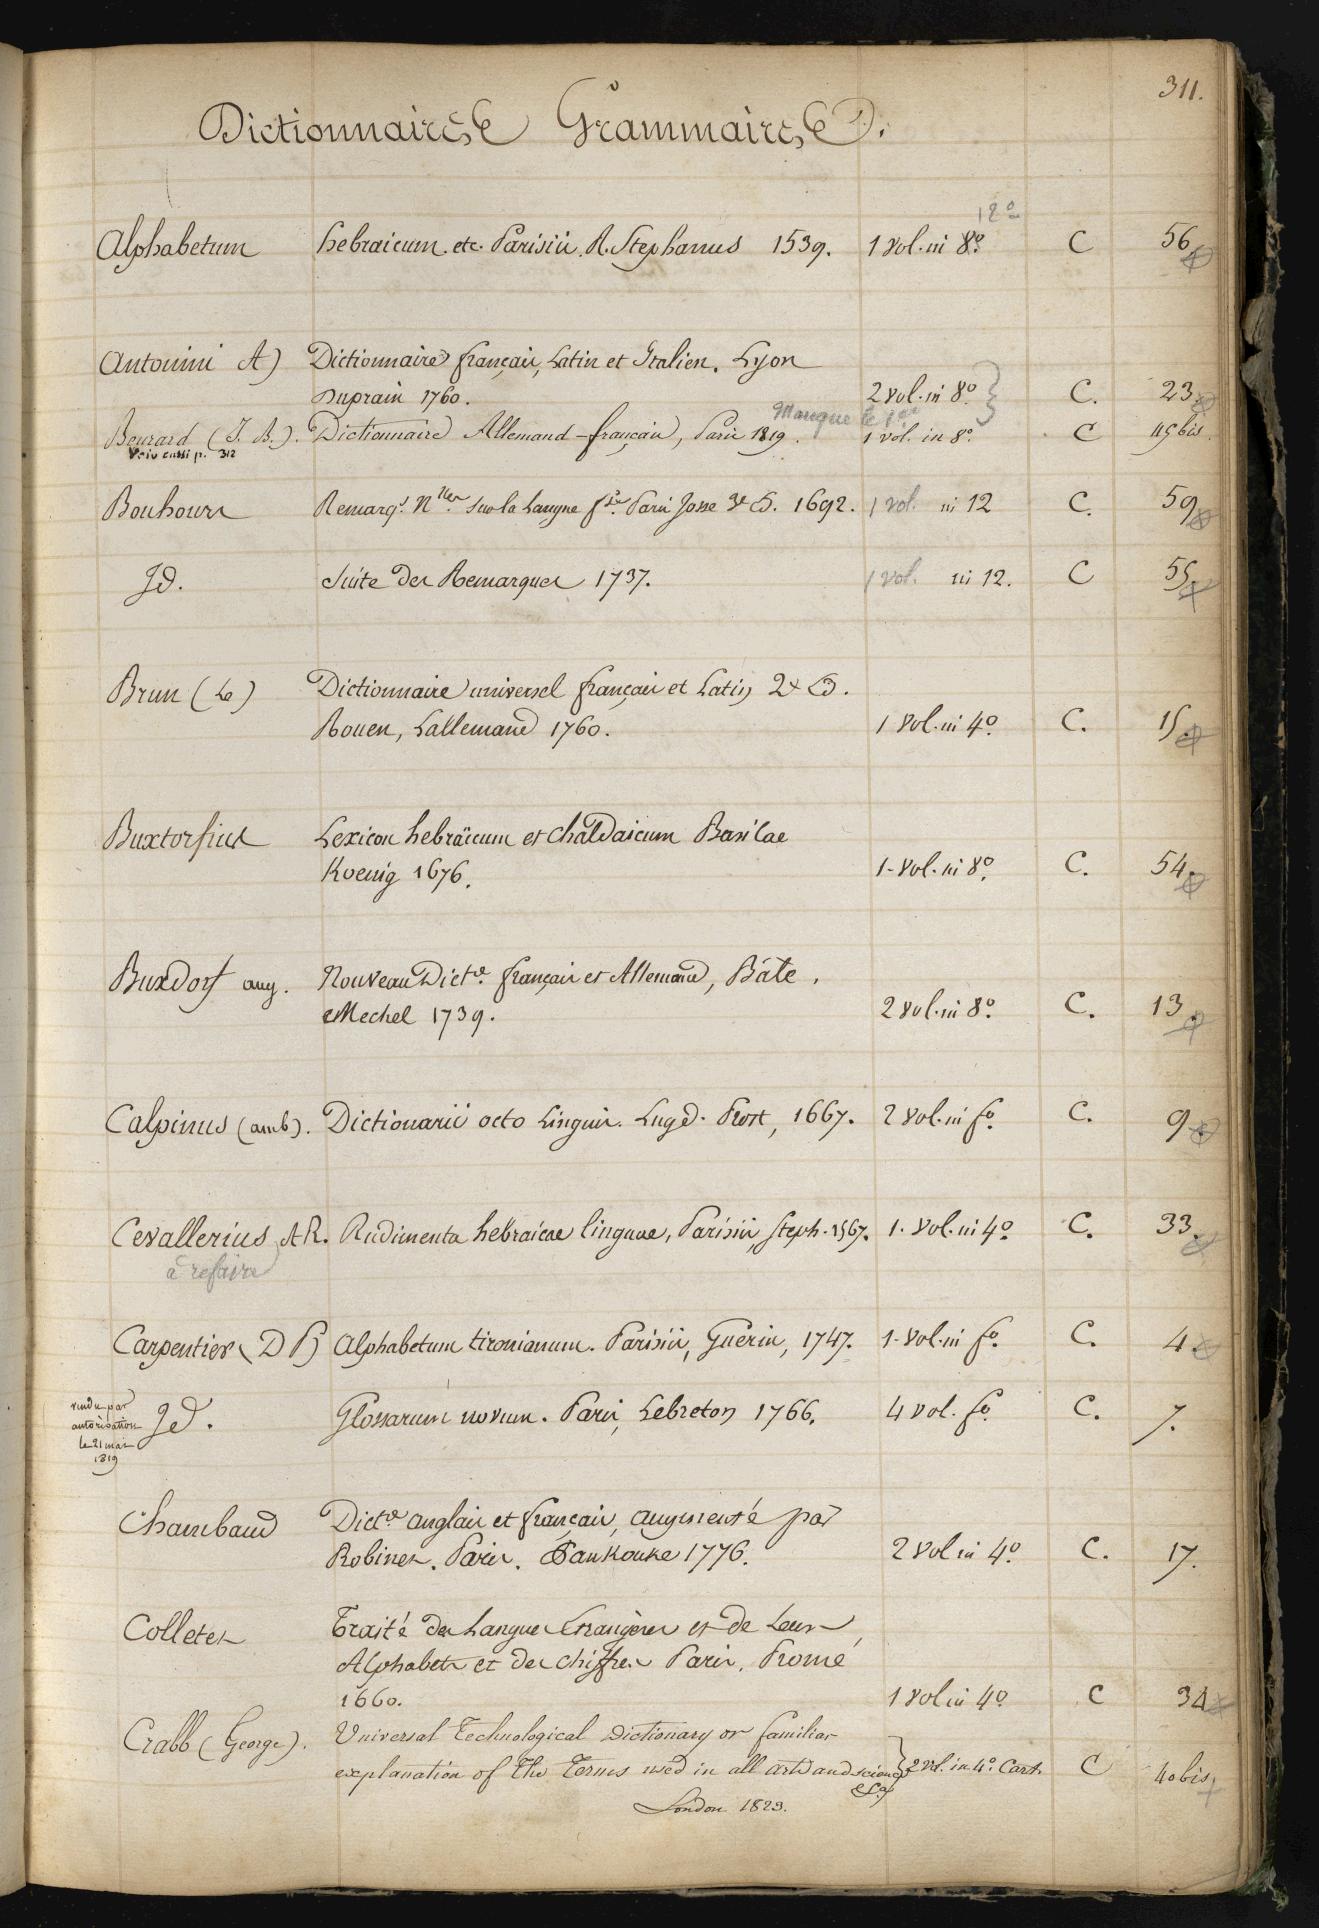 311.
Dictionnaires Grammaires
12º
Alphabetum hebraicum etc. Parisii. R. Stephanus 1539. 1 vol. in 8º. C 56
Antonini A) Dictionnaire français, Latin et Italien. Lyon
Duprain 1760. 2 vol. in 8º. C. 23.
Manque le 1er
(J. B.). Dictionnaire Allemand-français, Paris 1819. 1 vol. in 8º. C 115 bis
Voir aussi p. 312
Bouhours Remarqs. Nlles sur la Langue fse. Paris Josse 3e E. 1692. 1 vol. in 12 C. 59
Id. Suite des Remarques 1737. 1 vol. in 12. C 55.
Brun (Le) Dictionnaire universel français et Latin 2e E.
Rouen, Lallemand 1760. 1 vol. in 4º. C. 15.
Buxtorfius Lexicon hebraïcum et chaldaicum Basilae
Koenig 1676. 1. vol. in 8º. C. 54.
Buxdorf aug. Nouveau Dictre. français et Allemand, Bâle.
Mechel 1739. 2 vol. in 8º. C. 13.
Calpinus (amb). Dictionarii octo Linguis. Lugd. Prost, 1667. 2 vol. in fº. C. 9.
Cevallerius A R. Rudimenta hebraicae linguae, Parisiis, Steph. 1567. 1. vol. in 4º C. 33.
à refaire
Carpentier (D P) Alphabetum tironianum. Parisiis, Guerin, 1747. 1. vol. in fº. C. 4.
vendu par
autorisation
le 21 mai
1819
Id. Glossarum novum. Paris, Lebreton 1766. 4 vol. fº. C. 7.
Chambaud Dictre anglais et français, augmenté par
Robinet. Paris. Pankouke 1776. 2 vol in 4º. C. 17.
Colletet Traité des Langues Etrangères et de Leurs
Alphabets et des chiffres Paris. Promé
1660. 1 vol in 4º C 34
Crabb (George). Universal Technological Dictionary or familiar
explanation of the Terms used in all arts and sciences 2 vol. in 4º. Cart. C 40 bis
&ca
London 1823.